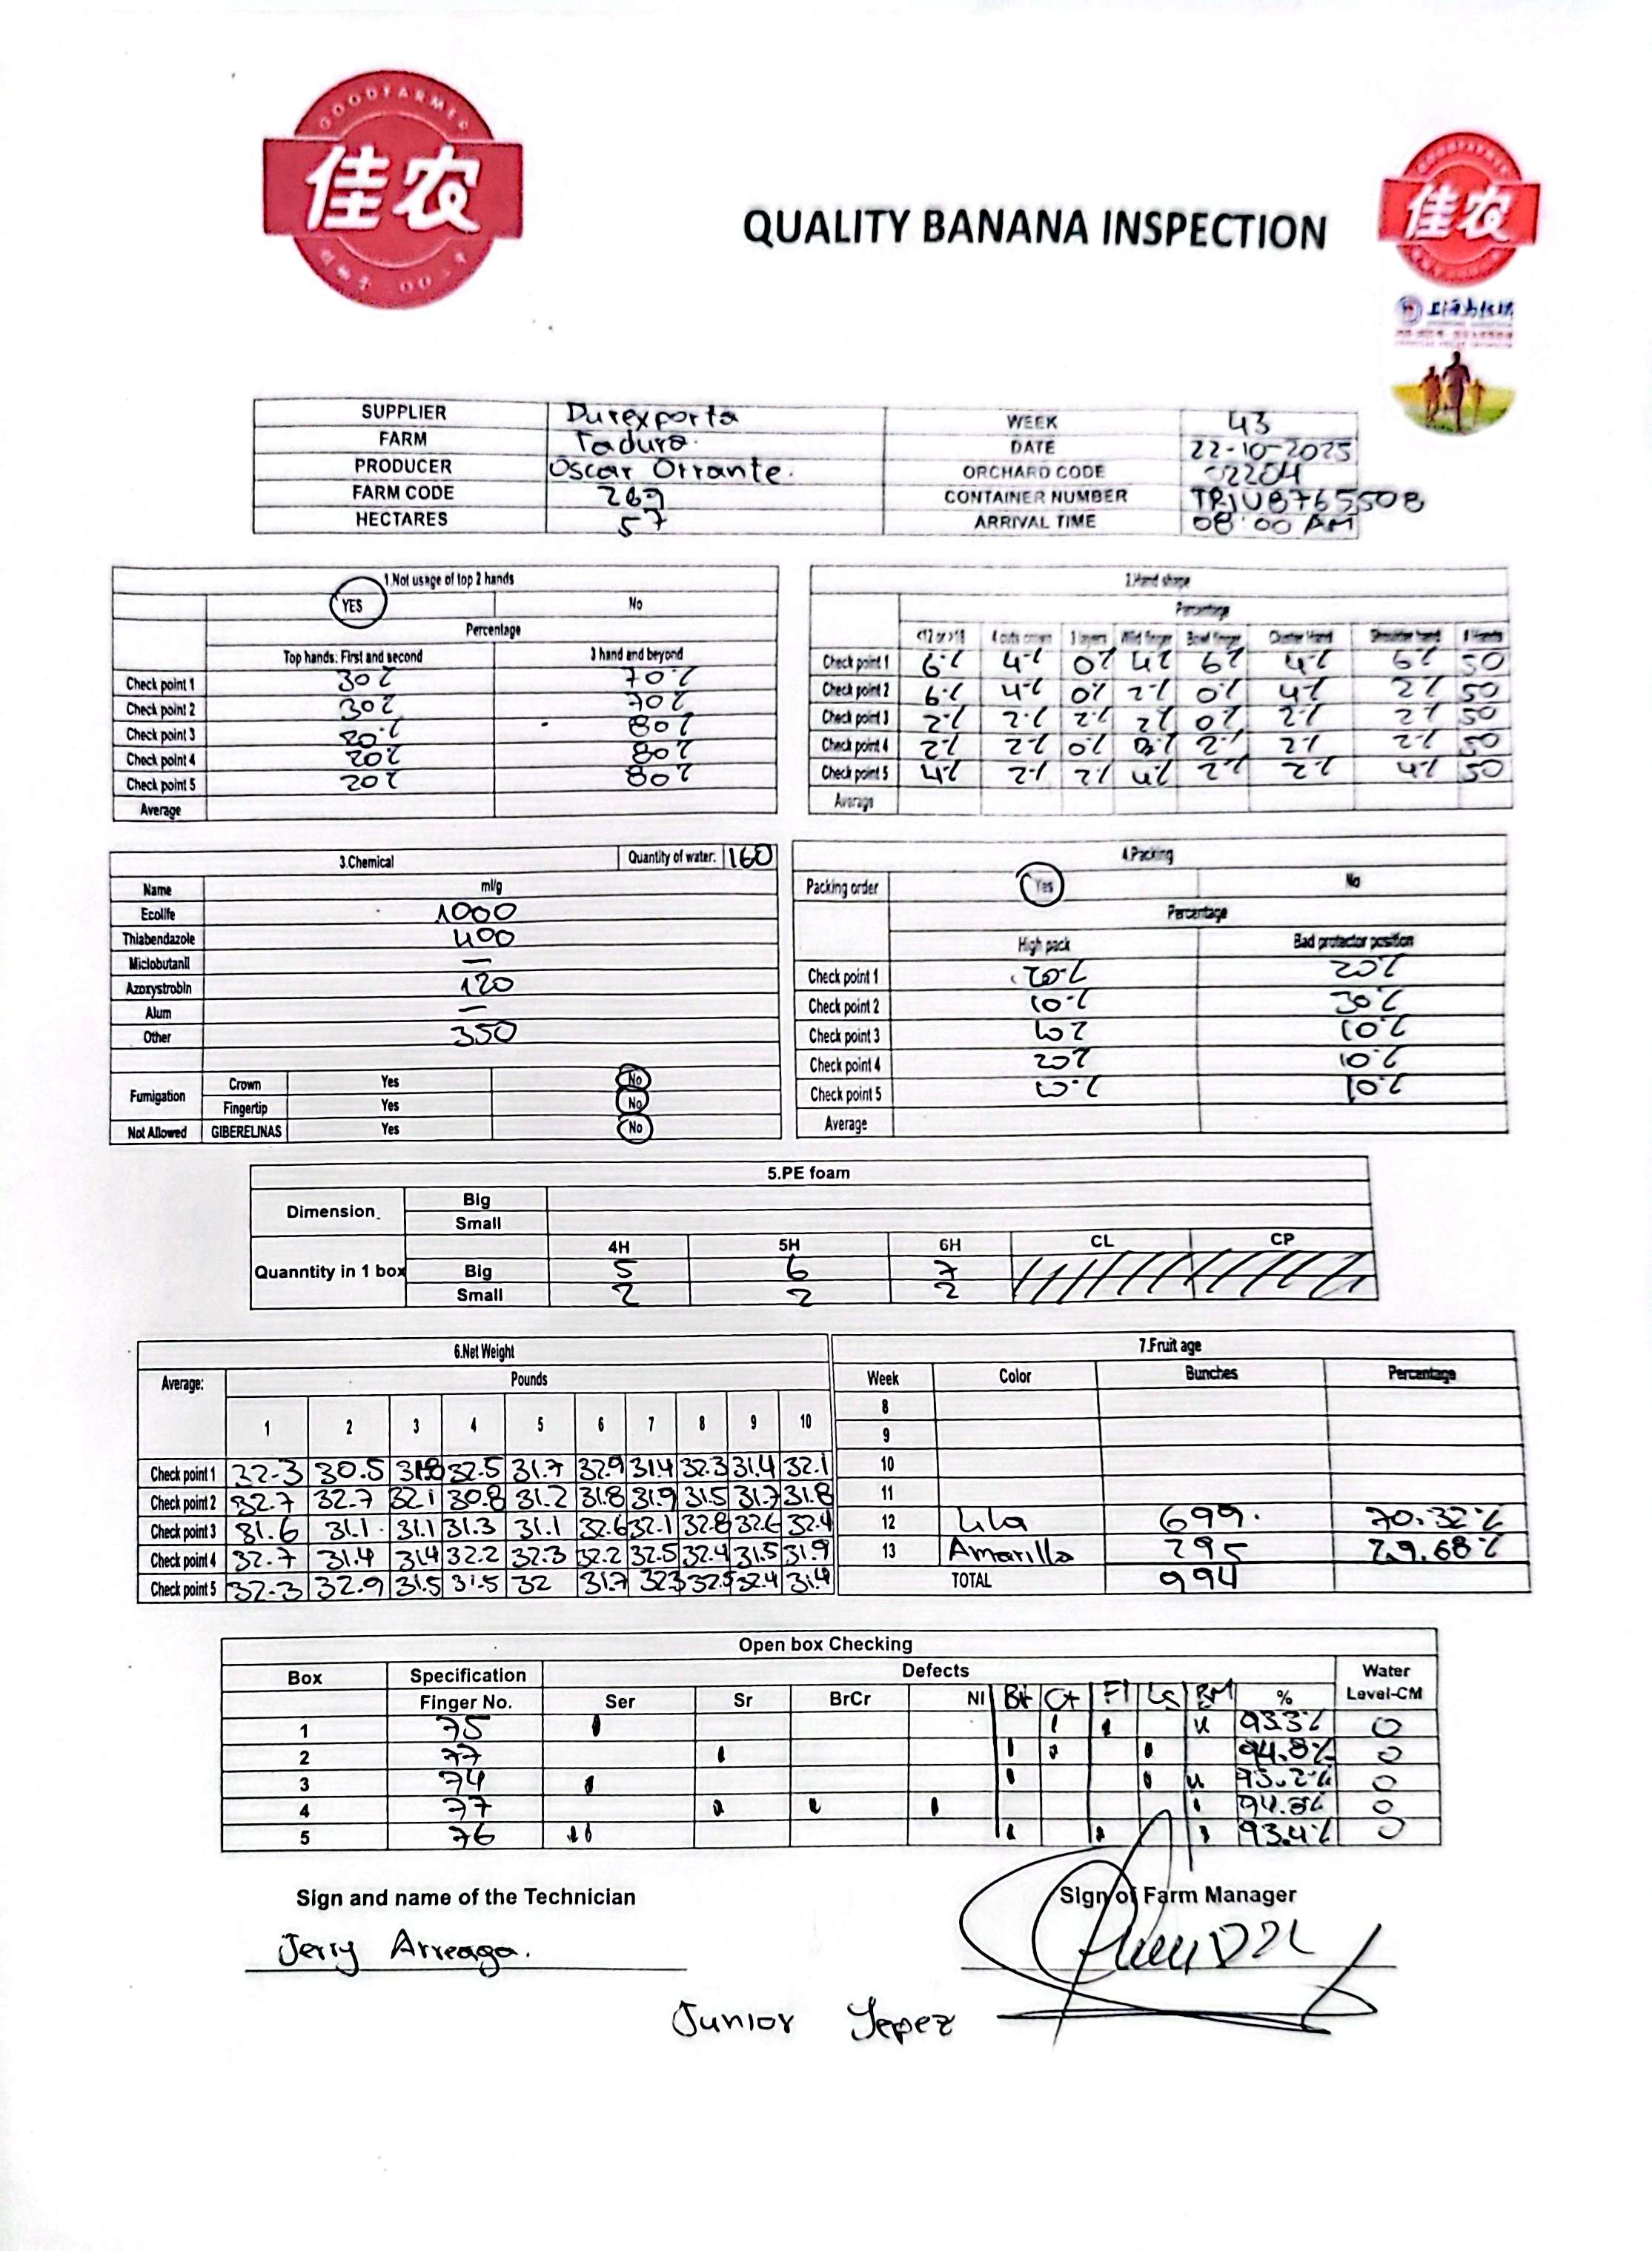 GOODFARMER
佳农
QUALITY BANANA INSPECTION
佳农
SUPPLIER Durexporta WEEK 43
FARM Tadura. DATE 22-10-2025
PRODUCER Oscar Orrante. ORCHARD CODE 02204
FARM CODE 269 CONTAINER NUMBER TRIU8765508
HECTARES 57 ARRIVAL TIME 08:00 AM
1.Not usage of top 2 hands
YES No
Percentage
Top hands: First and second 3 hand and beyond
Check point 1 30% 70%
Check point 2 30% 70%
Check point 3 20% 80%
Check point 4 20% 80%
Check point 5 20% 80%
Average
2.Hand shape
Percentage
<12 or >18 4 cuts crown 3 layers Wild finger Bowl finger Cluster Hand Shoulder hand # Hands
Check point 1 6% 4% 0% 4% 6% 4% 6% 50
Check point 2 6% 4% 0% 2% 0% 4% 2% 50
Check point 3 2% 2% 2% 2% 0% 2% 2% 50
Check point 4 2% 2% 0% 2% 2% 2% 50
Check point 5 4% 2% 2% 4% 2% 2% 4% 50
Average
3.Chemical Quantity of water: 160
Name ml/g
Ecolife 1000
Thiabendazole 400
Miclobutanil —
Azoxystrobin 120
Alum —
Other 350
Fumigation Crown Yes No
Fingertip Yes No
Not Allowed GIBERELINAS Yes No
4.Packing
Packing order Yes No
Percentage
High pack Bad protector position
Check point 1 20% 20%
Check point 2 10% 30%
Check point 3 10% 10%
Check point 4 20% 10%
Check point 5 10% 10%
Average
5.PE foam
Dimension Big
Small
4H 5H 6H CL CP
Quanntity in 1 box Big 5 6 7
Small 2 2 2
6.Net Weight
Average: Pounds
1 2 3 4 5 6 7 8 9 10
Check point 1 32.3 30.5 31.8 32.5 31.7 32.9 31.4 32.3 31.4 32.1
Check point 2 32.7 32.7 32.1 30.8 31.2 31.8 31.9 31.5 31.7 31.8
Check point 3 31.6 31.1 31.1 31.3 31.1 32.6 32.1 32.8 32.6 32.4
Check point 4 32.7 31.4 31.4 32.2 32.3 32.2 32.5 32.4 31.5 31.9
Check point 5 32.3 32.9 31.5 31.5 32 31.7 32.3 32.5 32.4 31.4
7.Fruit age
Week Color Bunches Percentage
8
9
10
11
12 Lila 699. 70.32%
13 Amarillo 295 29.68%
TOTAL 994
Open box Checking
Box Specification Defects Water
Finger No. Ser Sr BrCr NI Bt Ct FI Ls BM % Level-CM
1 75 93.3% 0
2 77 94.8% 0
3 74 93.2% 0
4 77 94.8% 0
5 76 93.4% 0
Sign and name of the Technician Sign of Farm Manager
Jerry Arreaga.
Junior Yepez